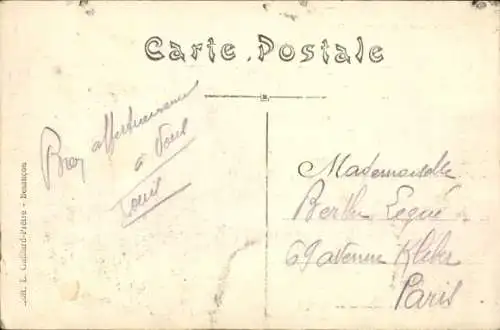 Carte Postale
Bien affectueusement
à vous
tous
Mademoiselle
Berthe Legué
69 avenue Kléber
Paris
Edit. L. Gaillard-Prêtre - Besançon